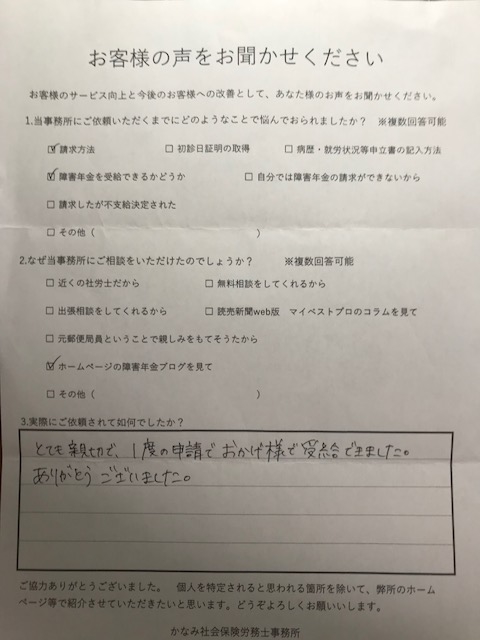 お客様の声をお聞かせください
お客様のサービス向上と今後のお客様への改善として、あなた様のお声をお聞かせください。
1.当事務所にご依頼いただくまでにどのようなことで悩んでおられましたか？　※複数回答可能
☑ 請求方法　□ 初診日証明の取得　□ 病歴・就労状況等申立書の記入方法
☑ 障害年金を受給できるかどうか　□ 自分では障害年金の請求ができないから
□ 請求したが不支給決定された
□ その他（　）
2.なぜ当事務所にご相談をいただけたのでしょうか？　※複数回答可能
□ 近くの社労士だから　□ 無料相談をしてくれるから
□ 出張相談をしてくれるから　□ 読売新聞web版　マイベストプロのコラムを見て
□ 元郵便局員ということで親しみをもてそうだから
☑ ホームページの障害年金ブログを見て
□ その他（　）
3.実際にご依頼されて如何でしたか？
とても親切で、1度の申請でおかげ様で受給できました。
ありがとうございました。
ご協力ありがとうございました。　個人を特定されると思われる箇所を除いて、弊所のホーム
ページ等で紹介させていただきたいと思います。どうぞよろしくお願いいします。
かなみ社会保険労務士事務所